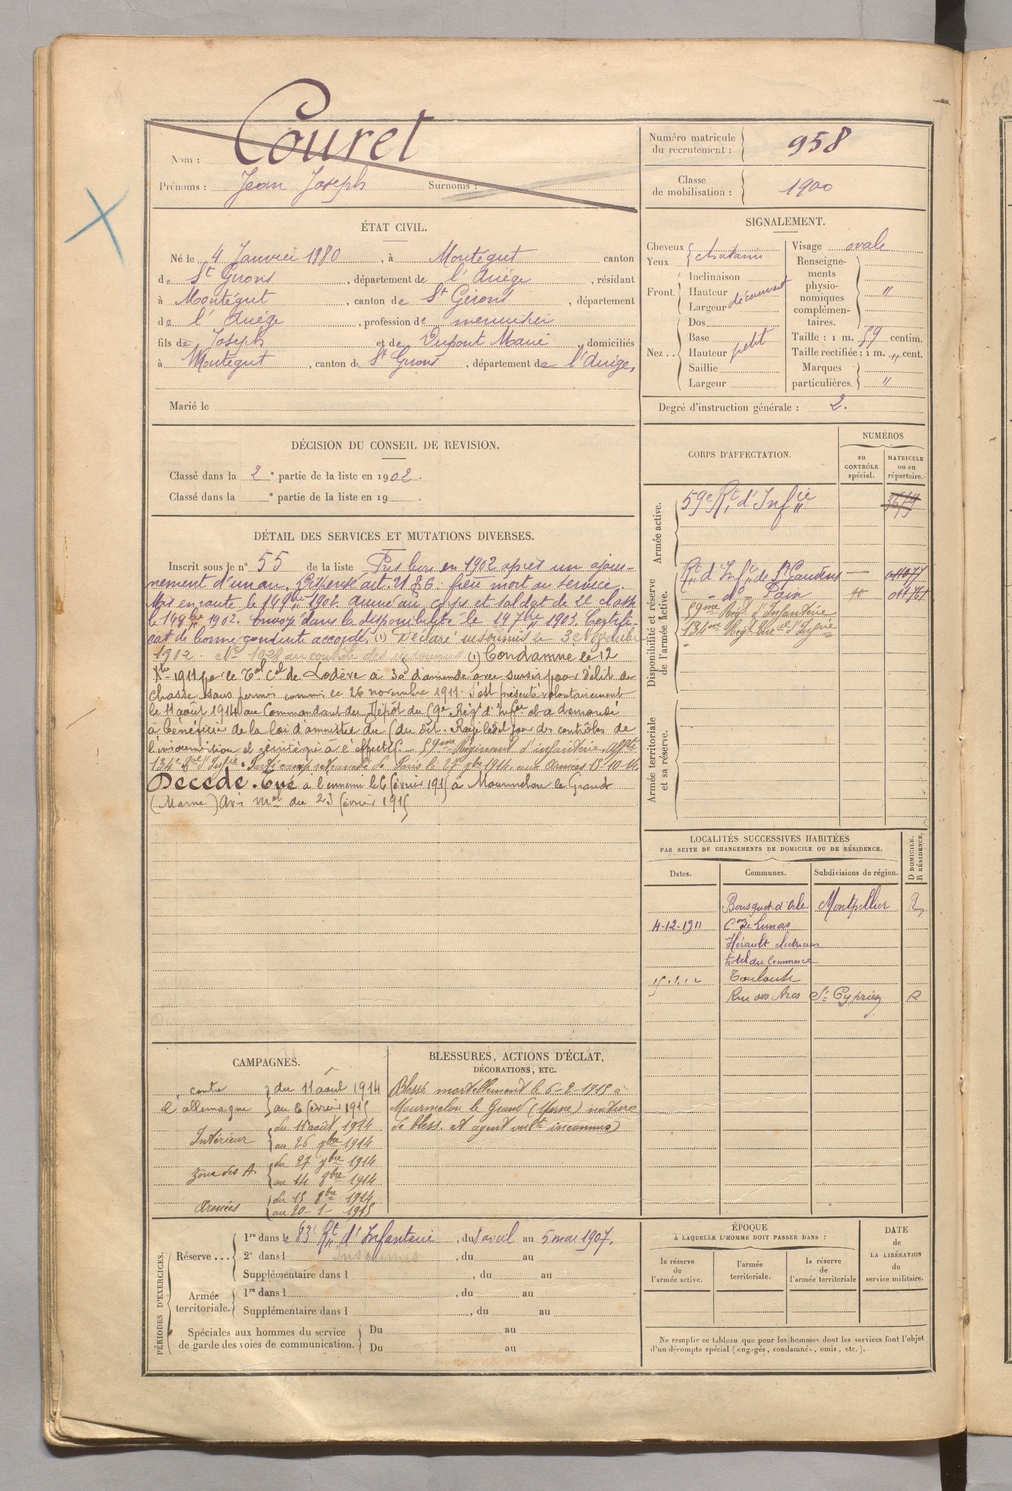 Nom : Couret
Prénoms : Jean Joseph Surnoms :
Numéro matricule du recrutement : 958
Classe de mobilisation : 1900
ÉTAT CIVIL.
Né le 4 Janvier 1880, à Montégut canton
de St Girons, département de l'Ariège, résidant
à Montégut, canton de St Girons, département
de l'Ariège, profession de menuisier
fils de Joseph et de Dupont Marie domiciliés
à Montégut, canton de St Girons, département de l'Ariège,
Marié le
SIGNALEMENT.
Cheveux
Yeux } chatains
Front. Inclinaison
Hauteur
Largeur découvert
Nez... Dos
Base
Hauteur petit
Saillie
Largeur
Visage ovale
Renseignements physionomiques complémentaires. "
Taille : 1 m. 59 centim.
Taille rectifiée : 1 m. " cent.
Marques particulières. "
Degré d'instruction générale : 2.
DÉCISION DU CONSEIL DE REVISION.
Classé dans la 2e partie de la liste en 1902.
Classé dans la e partie de la liste en 19
DÉTAIL DES SERVICES ET MUTATIONS DIVERSES.
Inscrit sous le n° 55 de la liste Pris bon en 1902 après un ajour-
nement d'un an. Dispensé art. 21 § 6 : frère mort au service.
Mis en route le 14 9bre 1902. Arrivé au corps et soldat de 2e classe
le 14 9bre 1902. Envoyé dans la disponibilité le 19 7bre 1903. Certifi-
cat de bonne conduite accordé. (1) Déclaré insoumis le 3
1912 au contrôle des insoumis (1) Condamné le 12
Xbre 1911 par le Tal Cel de Lodève à 30 d'amende avec sursis pour délit de
chasse sans permis commis le 26 novembre 1911. S'est présenté volontairement
le 11 août 1914 au Commandant du Dépôt du 59e Régt d'Infie et a demandé
à bénéficier de la loi d'amnistie du 5 août. Rayé le dit jour des contrôles de
l'insoumission et réintégré à l'effectif. 59me Régiment d'infanterie. Affecté
134e Régt d'Infie.
Décédé. Tué à l'ennemi le 6 février 1915 à Mourmelon le Grand
(Marne) Avis mel du 23 février 1915
CORPS D'AFFECTATION.
NUMÉROS
au CONTRÔLE spécial.
MATRICULE ou au répertoire.
Armée active.
59e Rt d'Infie 3679
Disponibilité et réserve de l'armée active.
Rt d'Infie de St Gaudens
do Foix
59me Régt d'Infanterie
134me Régt d'Infie
Armée territoriale et sa réserve.
LOCALITÉS SUCCESSIVES HABITÉES
PAR SUITE DE CHANGEMENTS DE DOMICILE OU DE RÉSIDENCE.
Dates. Communes. Subdivisions de région. D DOMICILE. R RÉSIDENCE.
Bousquet d'Orb Montpellier R
4-12-1911 Con de Lunas
Hérault
hôtel du Commerce
Toulouse
Rue des Arcs St Cyprien R
CAMPAGNES.
contre du 11 août 1914
l'allemagne au 6 février 1915
Intérieur du 11 août 1914
au 26 7bre 1914
Zone des A. du 27 7bre 1914
au 14 8bre 1914
Armées du 15 8bre 1914
BLESSURES, ACTIONS D'ÉCLAT,
DÉCORATIONS, ETC.
Blessé mortellement le 6-2-1915 à
Mourmelon le Grand (Marne) nature
de bless. et agent vult inconnus)
PÉRIODES D'EXERCICES.
Réserve... 1re dans le 83e Rt d'Infanterie, du 8 avril au 5 mai 1907.
2e dans l Insoumis
Supplémentaire dans l , du au
Armée territoriale. 1re dans l , du au
Supplémentaire dans l , du au
Spéciales aux hommes du service de garde des voies de communication. Du au
Du au
ÉPOQUE
À LAQUELLE L'HOMME DOIT PASSER DANS :
la réserve de l'armée active.
l'armée territoriale.
la réserve de l'armée territoriale
DATE de LA LIBÉRATION du service militaire.
Ne remplir ce tableau que pour les hommes dont les services font l'objet
d'un décompte spécial (engagés, condamnés, omis, etc.).